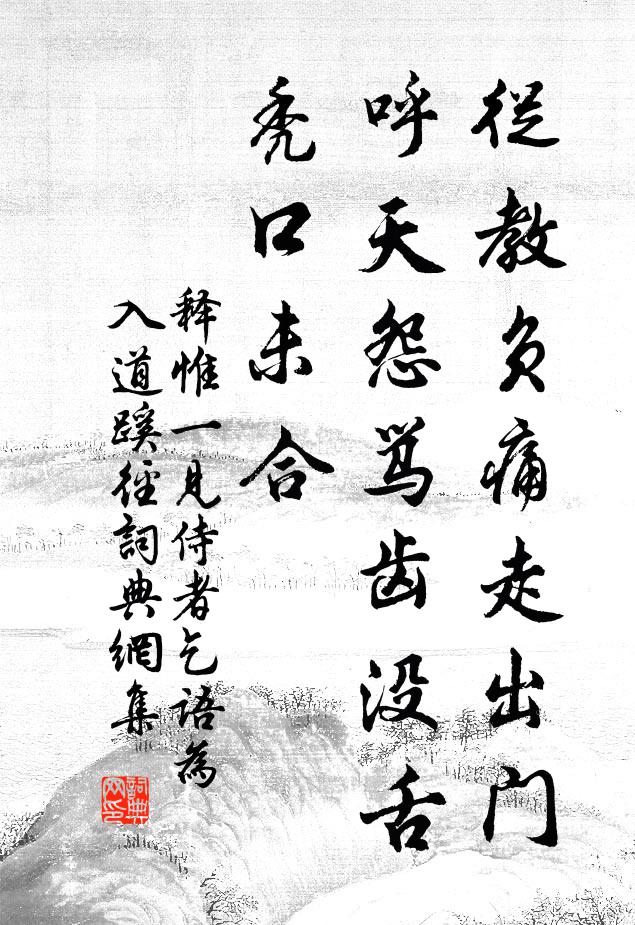 從教負痛走出門
呼天怨骂齿没舌
秃口未合
释惟一見侍者乞語為
入道蹊徑詞典網集
詞典
网印